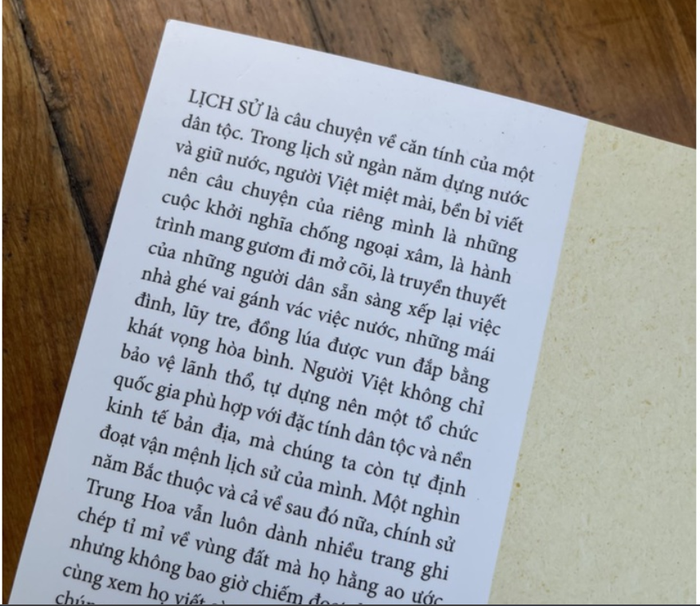 LỊCH SỬ là câu chuyện về căn tính của một
dân tộc. Trong lịch sử ngàn năm dựng nước
và giữ nước, người Việt miệt mài, bền bỉ viết
nên câu chuyện của riêng mình là những
cuộc khởi nghĩa chống ngoại xâm, là hành
trình mang gươm đi mở cõi, là truyền thuyết
của những người dân sẵn sàng xếp lại việc
nhà ghé vai gánh vác việc nước, những mái
đình, lũy tre, đồng lúa được vun đắp bằng
khát vọng hòa bình. Người Việt không chỉ
bảo vệ lãnh thổ, tự dựng nên một tổ chức
quốc gia phù hợp với đặc tính dân tộc và nền
kinh tế bản địa, mà chúng ta còn tự định
đoạt vận mệnh lịch sử của mình. Một nghìn
năm Bắc thuộc và cả về sau đó nữa, chính sử
Trung Hoa vẫn luôn dành nhiều trang ghi
chép tỉ mỉ về vùng đất mà họ hằng ao ước
nhưng không bao giờ chiếm
cùng xem họ viết